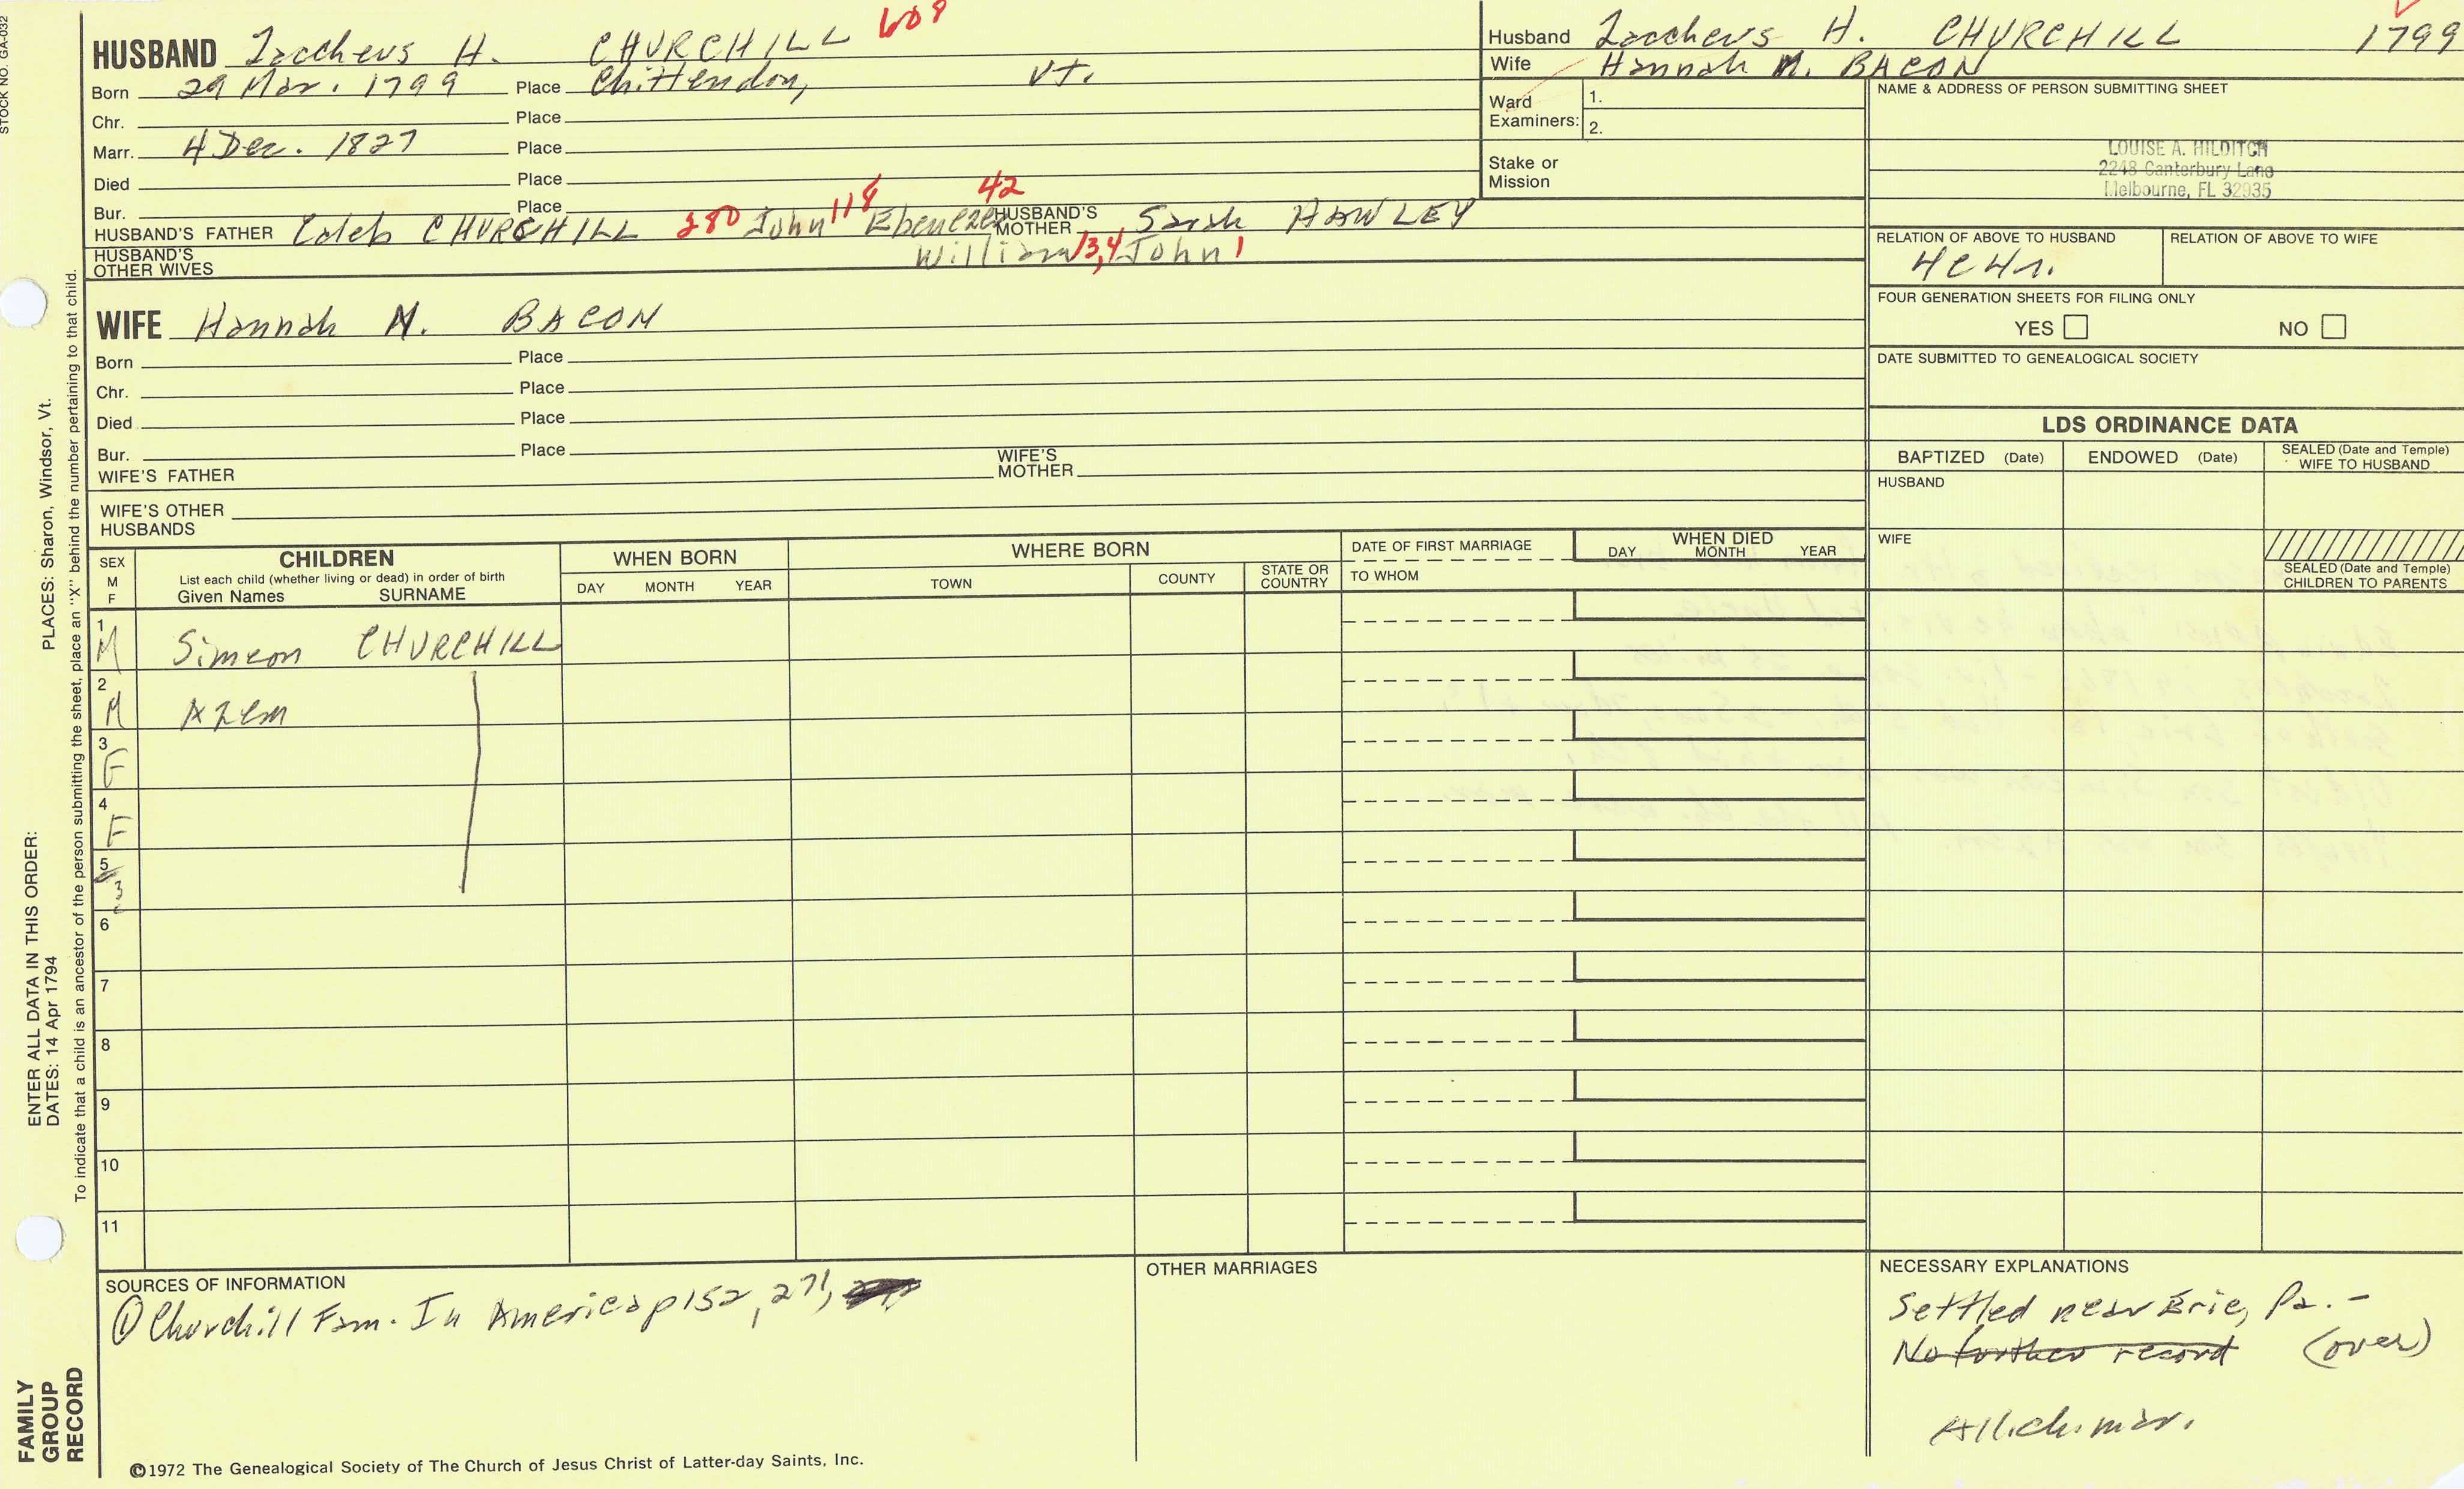 STOCK NO. GA-032
HUSBAND Zaccheus H. CHURCHILL 609
Born 29 Mar. 1799 Place Chittendon, Vt.
Chr. Place
Marr. 4 Dec. 1827 Place
Died Place
Bur. Place
HUSBAND'S FATHER Caleb CHURCHILL 280 John 118 Ebenezer 42 HUSBAND'S MOTHER Sarah HAWLEY
HUSBAND'S OTHER WIVES William 13,4 John 1
Husband Zaccheus H. CHURCHILL 1799
Wife Hannah M. BACON
Ward Examiners: 1.
2.
Stake or Mission
NAME & ADDRESS OF PERSON SUBMITTING SHEET
LOUISE A. HILDITCH
2248 Canterbury Lane
Melbourne, FL 32935
RELATION OF ABOVE TO HUSBAND RELATION OF ABOVE TO WIFE
4C4r.
FOUR GENERATION SHEETS FOR FILING ONLY
YES NO
DATE SUBMITTED TO GENEALOGICAL SOCIETY
WIFE Hannah M. BACON
Born Place
Chr. Place
Died Place
Bur. Place
WIFE'S FATHER WIFE'S MOTHER
WIFE'S OTHER HUSBANDS
LDS ORDINANCE DATA
BAPTIZED (Date) ENDOWED (Date) SEALED (Date and Temple) WIFE TO HUSBAND
HUSBAND
WIFE
SEALED (Date and Temple) CHILDREN TO PARENTS
SEX M F
CHILDREN
List each child (whether living or dead) in order of birth
Given Names SURNAME
WHEN BORN
DAY MONTH YEAR
WHERE BORN
TOWN COUNTY STATE OR COUNTRY
DATE OF FIRST MARRIAGE
TO WHOM
WHEN DIED
DAY MONTH YEAR
1 M Simeon CHURCHILL
2 M Azem
3 F
4 F
5 3
6
7
8
9
10
11
SOURCES OF INFORMATION
① Churchill Fam. In America p152, 271,
OTHER MARRIAGES
NECESSARY EXPLANATIONS
Settled near Erie, Pa. -
No further record (over)
All ch. mar.
©1972 The Genealogical Society of The Church of Jesus Christ of Latter-day Saints, Inc.
FAMILY GROUP RECORD
ENTER ALL DATA IN THIS ORDER:
DATES: 14 Apr 1794
PLACES: Sharon, Windsor, Vt.
To indicate that a child is an ancestor of the person submitting the sheet, place an "X" behind the number pertaining to that child.